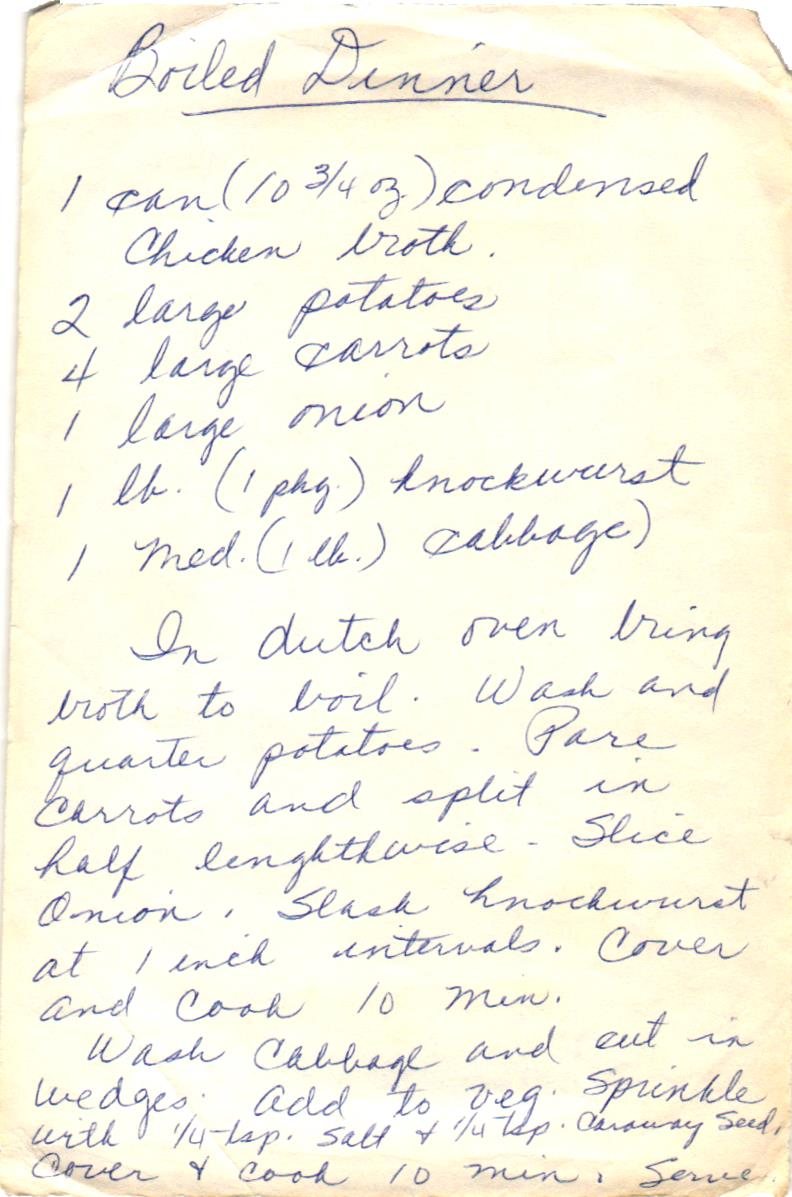 Boiled Dinner
1 can (10 3/4 oz.) condensed
Chicken broth.
2 large potatoes
4 large carrots
1 large onion
1 lb. (1 pkg.) knockwurst
1 Med. (1 lb.) cabbage)
In dutch oven bring
broth to boil. Wash and
quarter potatoes. Pare
carrots and split in
half lenghthwise - Slice
Onion. Slash knockwurst
at 1 inch intervals. Cover
and Cook 10 Min.
Wash Cabbage and cut in
wedges. Add to veg. Sprinkle
with 1/4 tsp. Salt & 1/4 tsp. Caraway Seed.
Cover & cook 10 min. Serve.